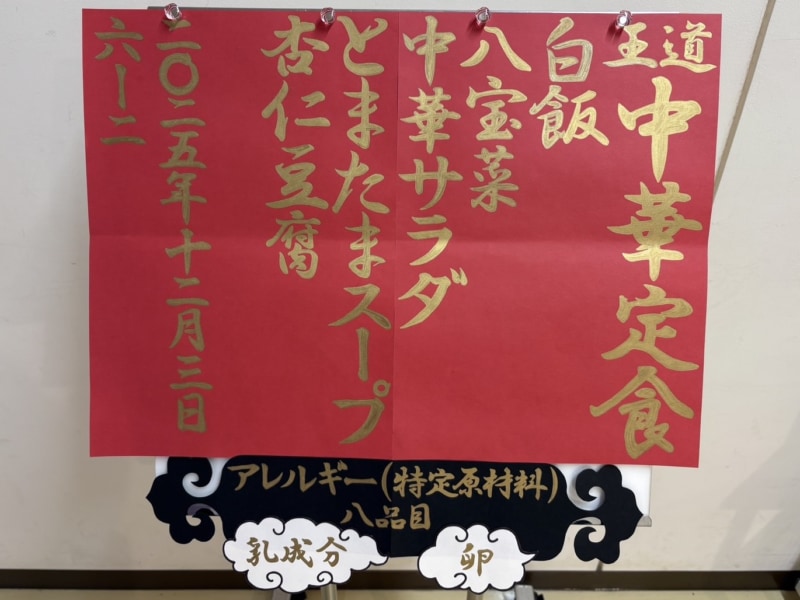 王道
中華定食
白飯
八宝菜
中華サラダ
とまたまスープ
杏仁豆腐
二〇二五年十二月三日
六ー二
アレルギー(特定原材料)
八品目
乳成分
卵